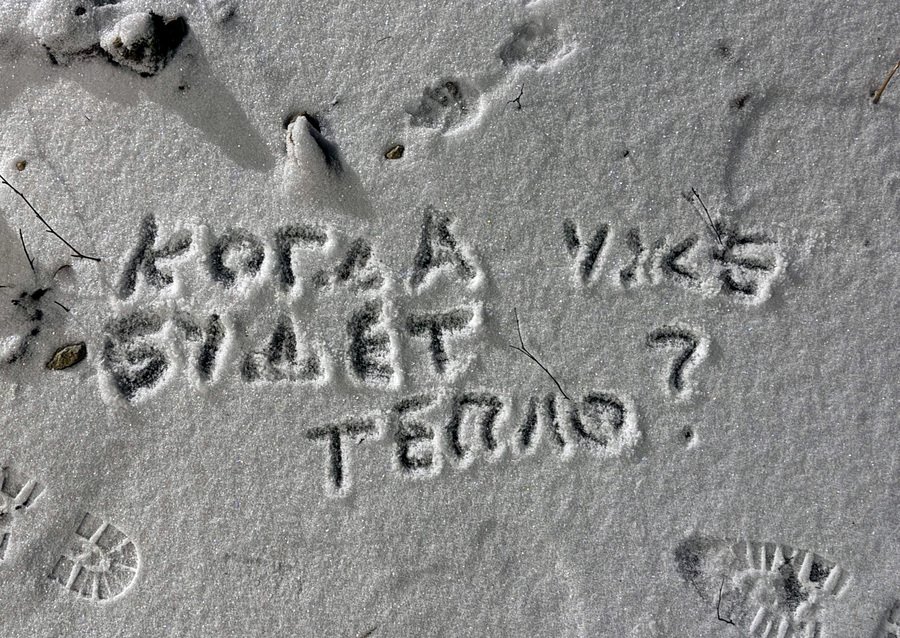 КОГДА УЖЕ
БУДЕТ
ТЕПЛО?